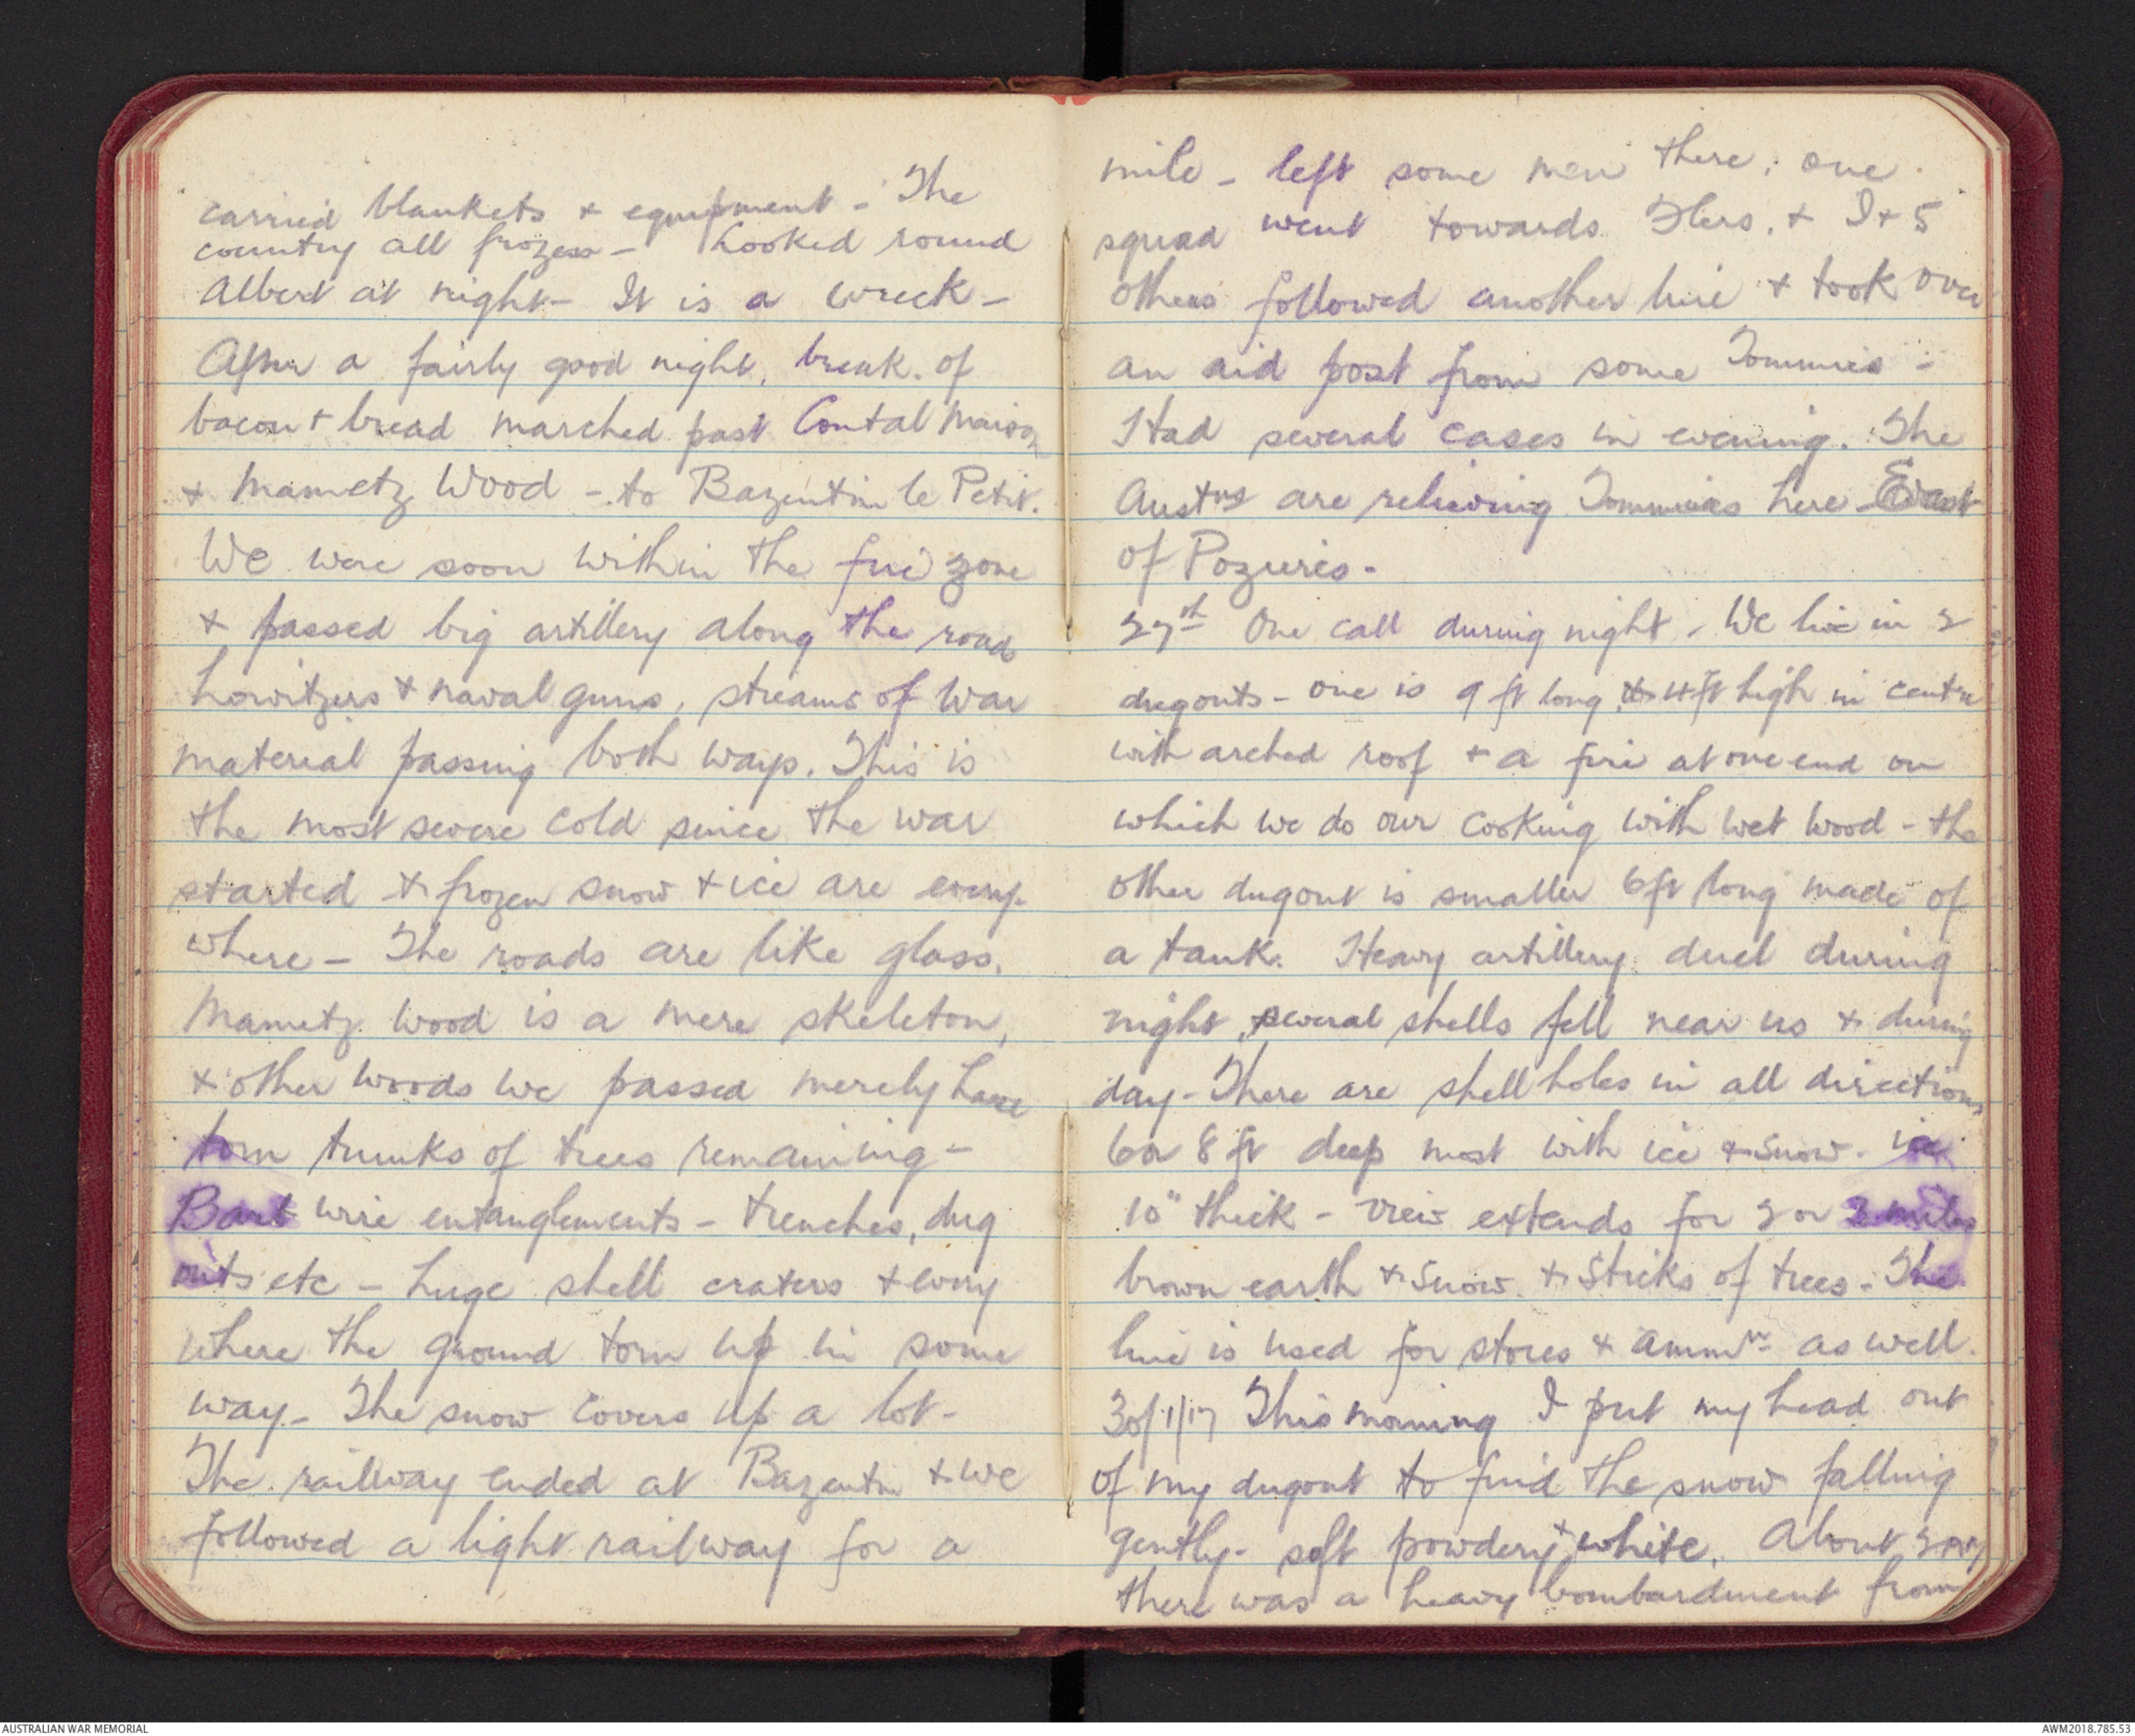 carried blankets + equipment - The
country all frozen - Looked round
Albert at night - It is a wreck -
After a fairly good night, break. of
bacon + bread marched past Contal Maison
+ Mametz Wood - to Bazentin le Petit.
We were soon within the fire zone
+ passed big artillery along the road
howitzers + naval guns, streams of war
material passing both ways. This is
the most severe cold since the war
started + frozen snow + ice are every-
where - The roads are like glass.
Mametz Wood is a mere skeleton,
+ other woods we passed merely have
torn trunks of trees remaining -
Barb wire entanglements - trenches, dug
outs etc - huge shell craters + every
where the ground torn up in some
way - The snow covers up a lot -
The railway ended at Bazentin + we
followed a light railway for a
mile - left some men there; one
squad went towards Flers. + I + 5
others followed another line + took over
an aid post from some Tommies -
Had several cases in evening. The
Austns are relieving Tommies here - East
of Pozieres -
27th One call during night. We live in 2
dugouts - one is 9 ft long, 4 ft high in centre
with arched roof + a fire at one end on
which we do our cooking with wet wood - the
other dugout is smaller 6 ft long made of
a tank. Heavy artillery duel during
night, several shells fell near us + during
day - There are shell holes in all directions
6 or 8 ft deep most with ice + snow - ice
10" thick - view extends for 2 or 3 miles
brown earth + snow. + sticks of trees - The
line is used for stores + ammn as well.
30/1/17 This morning I put my head out
of my dugout to find the snow falling
gently - soft powdery + white. About
there was a heavy bombardment from
AUSTRALIAN WAR MEMORIAL
AWM2018.785.53